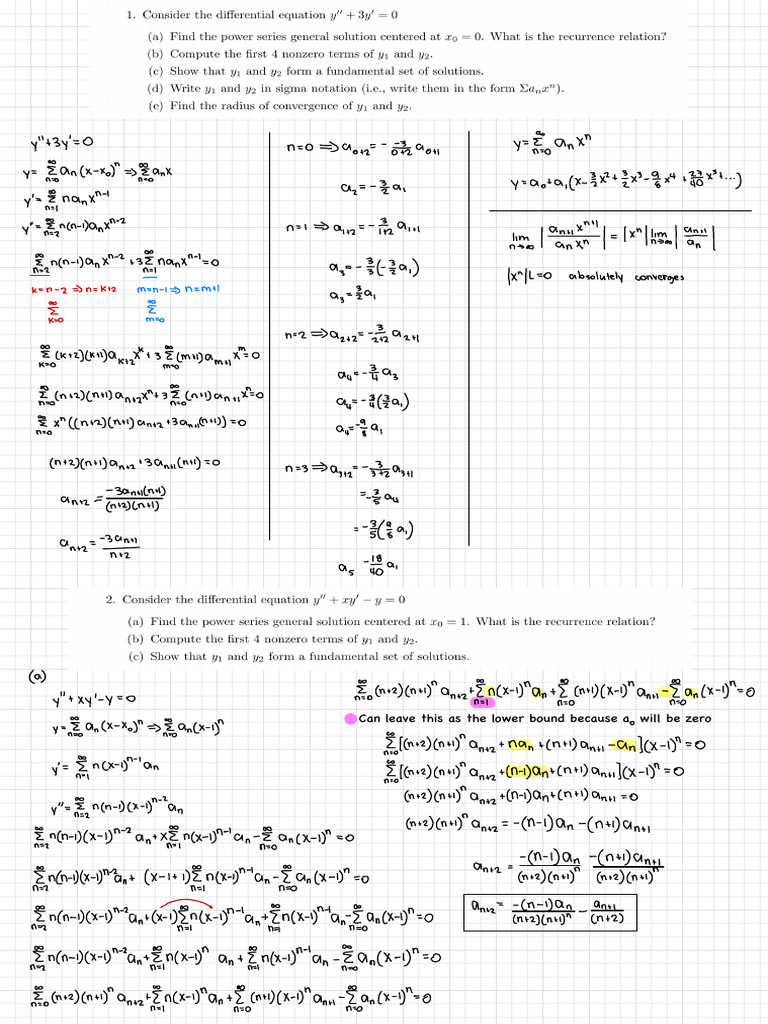 1. Consider the differential equation y″ + 3y′ = 0
(a) Find the power series general solution centered at x₀ = 0. What is the recurrence relation?
(b) Compute the first 4 nonzero terms of y₁ and y₂.
(c) Show that y₁ and y₂ form a fundamental set of solutions.
(d) Write y₁ and y₂ in sigma notation (i.e., write them in the form Σaₙxⁿ).
(e) Find the radius of convergence of y₁ and y₂.
y″+3y′=0
y= Σ_{n=0}^∞ aₙ(x-x₀)ⁿ ⇒ Σ_{n=0}^∞ aₙx
y′= Σ_{n=1}^∞ naₙxⁿ⁻¹
y″= Σ_{n=2}^∞ n(n-1)aₙxⁿ⁻²
Σ_{n=2}^∞ n(n-1)aₙxⁿ⁻² +3 Σ_{n=1}^∞ naₙxⁿ⁻¹=0
k=n-2 ⇒ n=k+2 m=n-1 ⇒ n=m+1
Σ_{k=0}^∞ Σ_{m=0}^∞
Σ_{k=0}^∞ (k+2)(k+1)a_{k+2}x^k + 3 Σ_{m=0}^∞ (m+1)a_{m+1}x^m=0
Σ_{n=0}^∞ (n+2)(n+1)a_{n+2}xⁿ+3 Σ_{n=0}^∞ (n+1)a_{n+1}xⁿ=0
Σ_{n=0}^∞ xⁿ((n+2)(n+1)a_{n+2}+3a_{n+1}(n+1))=0
(n+2)(n+1)a_{n+2}+3a_{n+1}(n+1)=0
a_{n+2} = -3a_{n+1}(n+1)/(n+2)(n+1)
a_{n+2} = -3a_{n+1}/n+2
n=0 ⇒ a_{0+2}= - -3/0+2 a_{0+1}
a₂=-3/2 a₁
n=1 ⇒ a_{1+2}=-3/1+2 a_{1+1}
a₃=-3/3(-3/2 a₁)
a₃=3/2 a₁
n=2 ⇒ a_{2+2}=-3/2+2 a_{2+1}
a₄=-3/4 a₃
a₄=-3/4(3/2 a₁)
a₄=-9/8 a₁
n=3 ⇒ a_{3+2}=-3/3+2 a_{3+1}
=-3/5 a₄
=-3/5(9/8 a₁)
a₅ -18/40 a₁
y= Σ_{n=0}^∞ aₙxⁿ
y=a₀+a₁(x-3/2x²+3/2x³-9/8x⁴+23/40x⁵+...)
lim_{n→∞} |a_{n+1}xⁿ⁺¹/aₙxⁿ| = |xⁿ| lim_{n→∞} |a_{n+1}/aₙ|
|xⁿ|L=0 absolutely converges
2. Consider the differential equation y″ + xy′ − y = 0
(a) Find the power series general solution centered at x₀ = 1. What is the recurrence relation?
(b) Compute the first 4 nonzero terms of y₁ and y₂.
(c) Show that y₁ and y₂ form a fundamental set of solutions.
(a)
y″+xy′-y=0
y= Σ_{n=0}^∞ aₙ(x-x₀)ⁿ ⇒ Σ_{n=0}^∞ aₙ(x-1)ⁿ
y′= Σ_{n=1}^∞ n(x-1)ⁿ⁻¹aₙ
y″= Σ_{n=2}^∞ n(n-1)(x-1)ⁿ⁻²aₙ
Σ_{n=2}^∞ n(n-1)(x-1)ⁿ⁻² aₙ+x Σ_{n=1}^∞ n(x-1)ⁿ⁻¹aₙ- Σ_{n=0}^∞ aₙ(x-1)ⁿ=0
Σ_{n=2}^∞ n(n-1)(x-1)ⁿ⁻²aₙ+ (x-1+1) Σ_{n=1}^∞ n(x-1)ⁿ⁻¹aₙ- Σ_{n=0}^∞ aₙ(x-1)ⁿ=0
Σ_{n=2}^∞ n(n-1)(x-1)ⁿ⁻²aₙ+(x-1) Σ_{n=1}^∞ n(x-1)ⁿ⁻¹aₙ+ Σ_{n=1}^∞ n(x-1)ⁿ⁻¹aₙ- Σ_{n=0}^∞ aₙ(x-1)ⁿ=0
Σ_{n=2}^∞ n(n-1)(x-1)ⁿ⁻²aₙ+ Σ_{n=1}^∞ n(x-1)ⁿ aₙ+ Σ_{n=1}^∞ n(x-1)ⁿ⁻¹aₙ - Σ_{n=0}^∞ aₙ(x-1)ⁿ=0
Σ_{n=0}^∞ (n+2)(n+1)ⁿ a_{n+2}+ Σ_{n=1}^∞ n(x-1)ⁿaₙ+ Σ_{n=0}^∞ (n+1)(x-1)ⁿ a_{n+1}- Σ_{n=0}^∞ aₙ(x-1)ⁿ=0
Σ_{n=0}^∞ (n+2)(n+1)ⁿ a_{n+2}+ Σ_{n=1}^∞ n(x-1)ⁿ aₙ+ Σ_{n=0}^∞ (n+1)(x-1)ⁿ a_{n+1} - Σ_{n=0}^∞ aₙ(x-1)ⁿ=0
Can leave this as the lower bound because a₀ will be zero
Σ_{n=0}^∞ [(n+2)(n+1)ⁿ a_{n+2}+naₙ+(n+1)a_{n+1}-aₙ](x-1)ⁿ=0
Σ_{n=0}^∞ [(n+2)(n+1)ⁿ a_{n+2}+(n-1)aₙ+(n+1)a_{n+1}](x-1)ⁿ=0
(n+2)(n+1)ⁿ a_{n+2}+(n-1)aₙ+(n+1)a_{n+1}=0
(n+2)(n+1)ⁿ a_{n+2}=-(n-1)aₙ-(n+1)a_{n+1}
a_{n+2} = -(n-1)aₙ/(n+2)(n+1)ⁿ -(n+1)a_{n+1}/(n+2)(n+1)ⁿ
a_{n+2}= -(n-1)aₙ/(n+2)(n+1)ⁿ - a_{n+1}/(n+2)